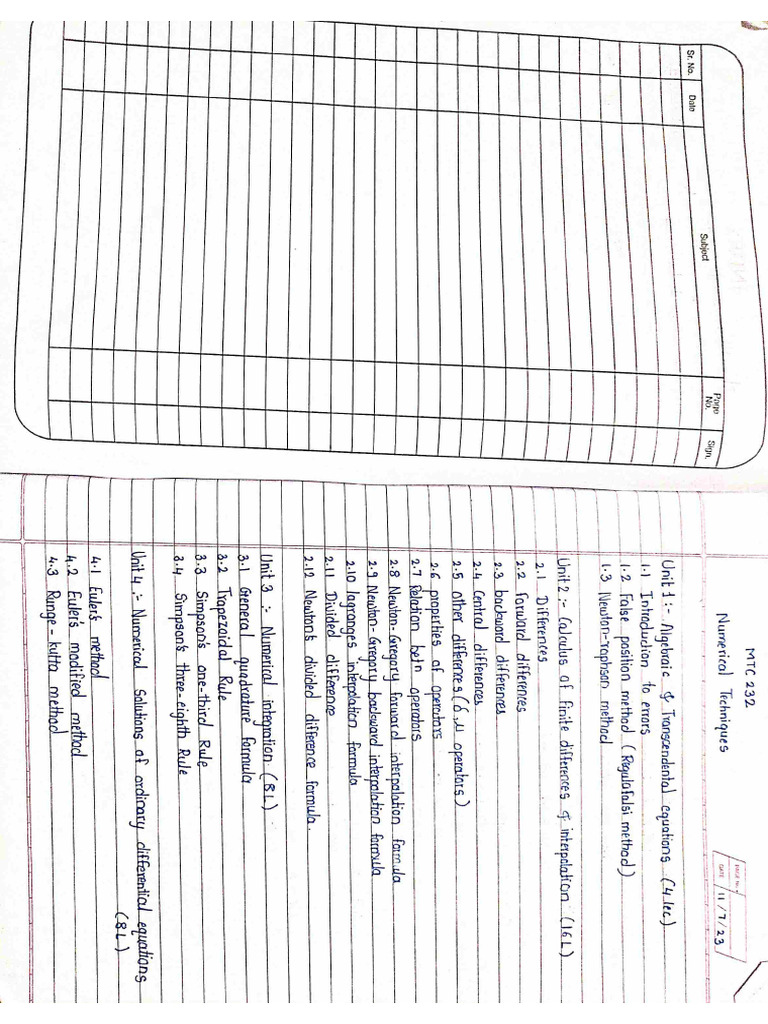 Sr. No. Date Subject Page No. Sign.
PAGE No.
DATE 11/7/23
MTC 232
Numerical Techniques
Unit 1 :- Algebraic & Transcendental equations (4 lec)
1.1 Introduction to errors
1.2 False position method (Regulafalsi method)
1.3 Newton-raphson method
Unit 2 :- Calculus of finite differences & interpolation (16L)
2.1 Differences
2.2 forward differences
2.3 backward differences
2.4 Central differences
2.5 other differences (δ, μ operators)
2.6 properties of operators
2.7 Relation betn operators
2.8 Newton-Gregory forward interpolation formula
2.9 Newton-Gregory backward interpolation formula
2.10 lagranges interpolation formula
2.11 Divided difference
2.12 Newton's divided difference formula.
Unit 3 :- Numerical integration (8L)
3.1 General quadrature formula
3.2 Trapezoidal Rule
3.3 Simpson's one-third Rule
3.4 Simpson's three-eighth Rule
Unit 4 :- Numerical Solutions of ordinary differential equations
(8L)
4.1 Euler's method
4.2 Euler's modified method
4.3 Runge-kutta method